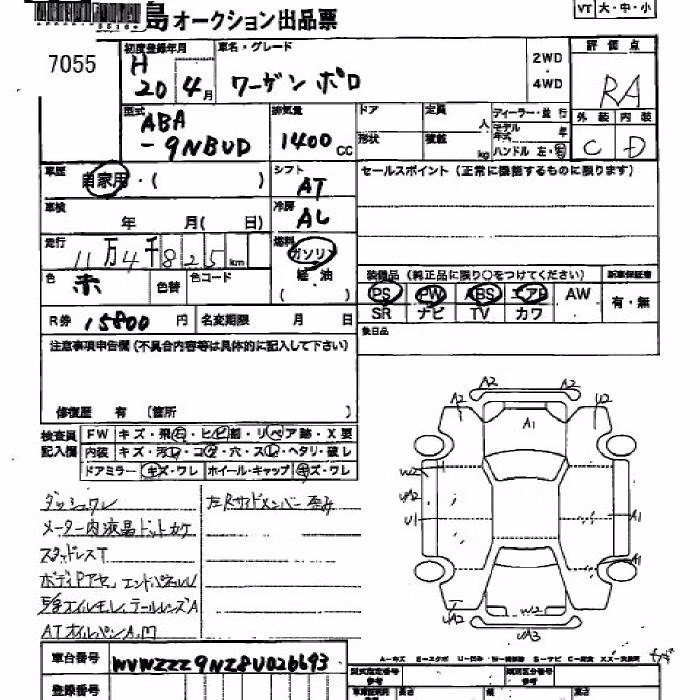 島 オークション出品票
VT 大・中・小
7055
初度登録年月 H 20 4月
車名・グレード ワーゲン ポロ
2WD ・ 4WD
評価点 RA
型式 ABA -9NBUD
排気量 1400 CC
ドア 定員 人
形状 積載 kg
ディーラー・並行
モデル年式 年
ハンドル 左・右
外装 内装
C D
車歴 自家用・( )
シフト AT
セールスポイント (正常に機能するものに限ります)
車検 年 月( 日)
冷房 AC
走行 11万4千825km
燃料 ガソリン 軽油 ( )
色 赤 色替 色コード
装備品 (純正品に限り○をつけてください) 新車保証書
PS PW ABS エアB AW 有・無
SR ナビ TV カワ
R券 15800円 名変期限 月 日
後日品
注意事項申告欄 (不具合内容等は具体的に記入して下さい)
修復歴 有 (箇所 )
検査員記入欄
FW キズ・飛石・ヒビ割・リペア跡・X要
内装 キズ・汚レ・コゲ・穴・スレ・ヘタリ・破レ
ドアミラー キズ・ワレ ホイール・キャップ キズ・ワレ
ダッシュワレ 左Rサイドメンバー歪み
メーター内液晶ドットカケ
スタッドレスT
ボディPアセ、エンドパネルU
テールレンズA
ATオイルパンA,M
A2 A2
A2 U2
A1
W2
UA2
U1 A1
A1
UA2 W2
UA3
車台番号 WVWZZZ9NZ8U026693
登録番号
A…キズ
型式指定番号 類別区分番号